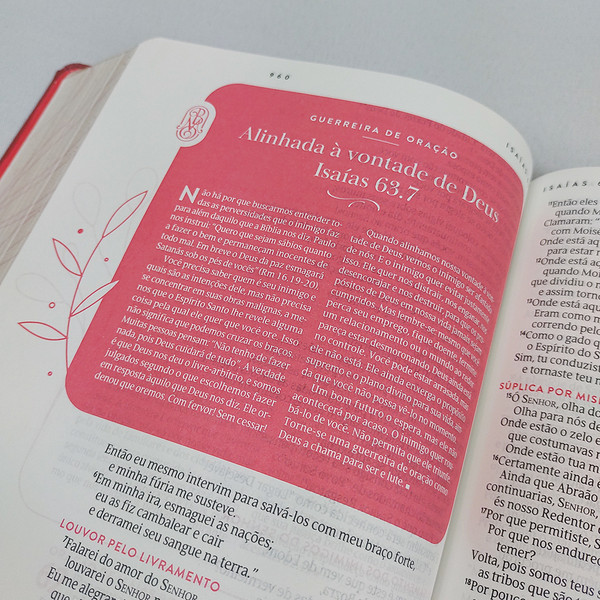 960
GUERREIRA DE ORAÇÃO
Alinhada à vontade de Deus
Isaías 63.7
Não há por que buscarmos entender to-
das as perversidades que o inimigo faz
para além daquilo que a Bíblia nos diz. Paulo
nos instrui: "Quero que sejam sábios quanto
a fazer o bem e permaneçam inocentes de
todo mal. Em breve o Deus da paz esmagará
Satanás sob os pés de vocês" (Rm 16.19-20).
Você precisa saber quem é seu inimigo e
quais são as intenções dele, mas não precisa
se concentrar em suas obras malignas, a me-
nos que o Espírito Santo lhe revele alguma
coisa pela qual ele quer que você ore. Isso
não significa que podemos cruzar os braços.
Muitas pessoas pensam: "Não tenho de fazer
nada, pois Deus cuidará de tudo". A verdade
é que Deus nos deu o livre-arbítrio, e somos
julgados segundo o que escolhemos fazer
em resposta àquilo que Deus nos diz. Ele or-
denou que oremos. Com fervor! Sem cessar!
Quando alinhamos nossa vontade à von-
tade de Deus, vemos o inimigo ser afastado
de nós. E o inimigo quer evitar justamente
isso. Ele quer nos distrair, nos enganar, nos
desencorajar e nos destruir, para que os pro-
pósitos de Deus em nossa vida jamais sejam
cumpridos. Mas lembre-se: mesmo que você
perca seu emprego, fique doente, termine
um relacionamento, ou o mundo ao redor
pareça estar desmoronando, Deus ainda está
no controle. Você pode estar arrasada, mas
ele não está. Ele ainda enxerga o propósito
supremo e o plano divino para sua vida, ain-
da que você não possa vê-lo no momento.
Um bom futuro o espera, mas ele não
acontecerá por acaso. O inimigo quer rou-
bá-lo de você. Não permita que ele triunfe.
Torne-se uma guerreira de oração como
Deus a chama para ser e lute.
Então eu mesmo intervim para salvá-los com meu braço forte,
e minha fúria me susteve.
6Em minha ira, esmaguei as nações;
eu as fiz cambalear e cair
e derramei seu sangue na terra."
LOUVOR PELO LIVRAMENTO
7Falarei do amor do SENHOR,
louvarei o SENHOR
Eu me alegra
ISAÍAS
ISAÍAS 6
11Então eles
quando M
Clamaram: "
com Moisé
Onde está aq
para estar n
12Onde está aq
quando Moi
que dividiu o m
e assim torno
13Onde está aqu
Eram como m
correndo pelo
14Como o gado q
o Espírito do S
Sim, tu conduzis
e tornaste teu n
SÚPLICA POR MIS
15Ó SENHOR, olha do
Olha para nós de
Onde estão o zelo e
que costumavas
Onde estão tua m
16Certamente ainda é
Ainda que Abraão
continuarias, SENHOR,
és nosso Redentor d
17Por que permitiste, S
Por que nos endurec
temer?
Volta, pois somos teus s
as tribos que são t
18Por pouco